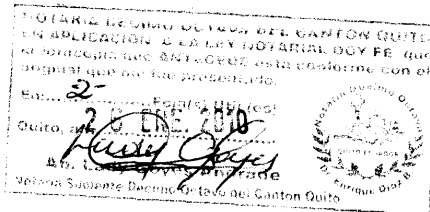 NOTARIA DECIMO OCTAVA DEL CANTON QUITO
EN APLICACION A LA LEY NOTARIAL DOY FE que
la fotocopia que ANTECEDE está conforme con el
original que me fue presentado.
En: 2 Foja(s) Util(es)
Quito, a 26 ENE. 2010
Ab. Goyes Andrade
Notaria Suplente Decimo Octavo del Canton Quito
Notario Decimo Octavo
Enrique Díaz B.